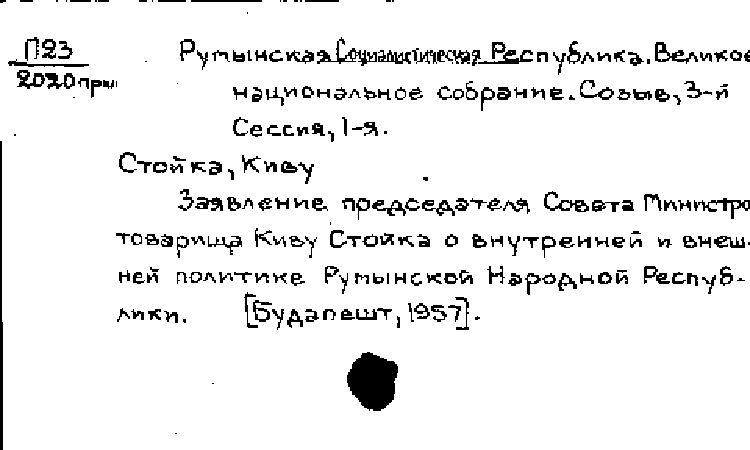 П23
2020прил
Румынская Социалистическая Республика. Великое
национальное собрание. Созыв, 3-й
Сессия, 1-я.
Стойка, Киву
Заявление председателя Совета Министро
товарища Киву Стойка о внутренней и внеш-
ней политике Румынской Народной Респуб-
лики. [Будапешт, 1957].